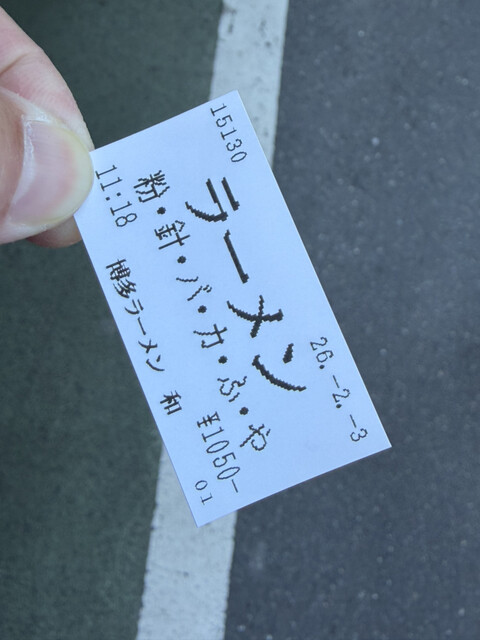 15130 26.-2.-3
ラーメン
粉・針・バ・カ・ふ・や
11:18 ¥1050-
博多ラーメン 和 01